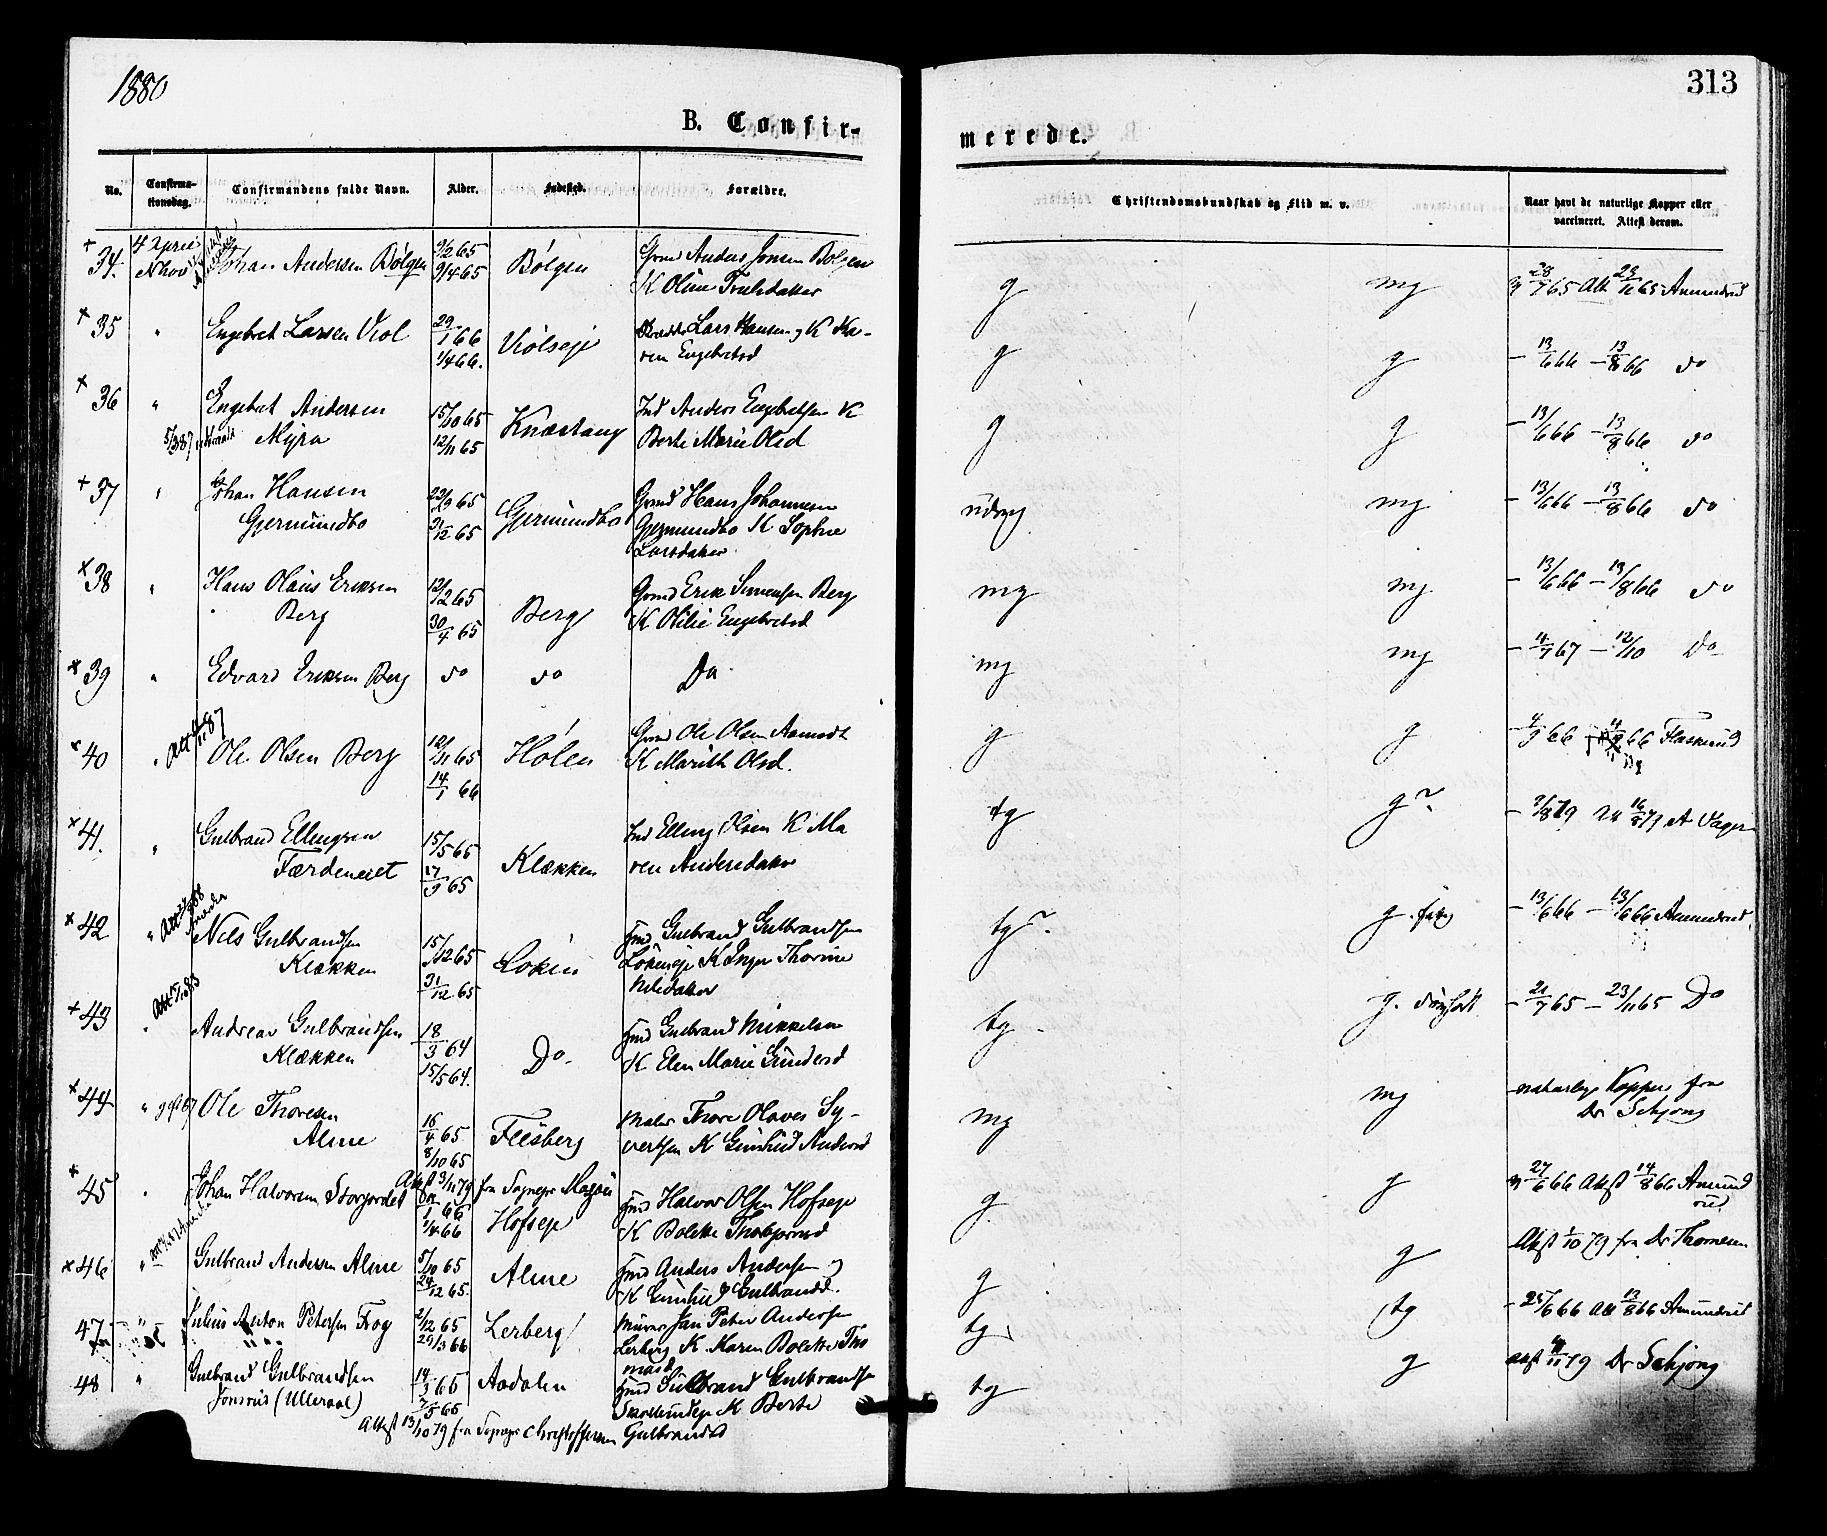 1880
313
B. Confir-
merede.
No.
Confirma-
tionsdag.
Confirmandens fulde Navn.
Alder.
Fødested.
Forældre.
Christendomskundskab og Flid m. v.
Naar havt de naturlige Kopper eller
vaccineret. Attest derom.
+ 34. 4 April Johan Andersen Bølgen 9/2 65 Bølgen Grmd Anders Jonsen Bølgen
9/4 65 K Oline Trulsdatter g mg 28/7 65 Att 23/11 65 Amundrud
+ 35 " Engebret Larsen Viol 29/1 66 Violseje Lars Hansen og K Ka-
1/4 66. ren Engebretsd g g – 13/6 66 – 13/8 66 do
+ 36 " Engebret Andersen 15/10 65 Knæstang Ind Anders Engebretsen K
5/3 87 Myra 12/11 65 Berte Marie Olsd g g – 13/6 66 – 13/8 66 do
+ 37 " Johan Hansen 65 Gjermundbo Grmd Hans Johannesen
Gjermundbo 31/12 65 Gjermundbo K Sophie
Larsdatter udmg mg – 13/6 66 – 13/8 66 do
+ 38 " Hans Olaus Eriksen 12/2 65 Berg Grmd Erik Simensen Berg
Berg 30/4 65 K Olilie Engebretsd mg mg – 13/6 66 – 13/8 66 do
+ 39 " Edvard Eriksen Berg do do Do mg mg – 4/7 67 – 12/10 Do
Att 87
+ 40 " Ole Olsen Berg 12/11 65 Hølen Grmd Ole Olsen Aamodt
14/1 66 K Marith Olsd. g g – 4/9 66 66 Flaskerud
+ 41. " Gulbrand Ellingsen 15/5 65 Klækken Ind Elling Olsen K Ma
Færdeneiet 17/9 65 ren Andersdatter tg g? – 7/8 79 16/8 79
Att 88
+ 42 " Nils Gulbrandsen 15/12 65 Løken Hmd Gulbrand Gulbrandsen
Klækken 31/12 65 Løkeneje K Inger Thorine
Nilsdatter tg? g. – 13/6 66 – 13/6 66 Amundrud
+ 43 Andreas Gulbrandsen 18/3 64 Do Hmd Gulbrand Mikkelsen
Klækken 15/5 64. K Elen Marie Gundersd tg g. – 21/7 65 – 23/11 65 Do
+ 44 " Ole Thoresen 16/4 65 Flesberg Maler Thore Olaves Sy-
Alme 8/10 65 vertsen K Gunhild Andersd mg mg naturlige Kopper fra
Dr Schjong
+ 45 Johan Halvorsen Storjordet Attest 3/11 79 fra Sognepr Magnus
1/4 66 Hofseje Hmd Halvor Olsen Hofseje
K Bolette Thorbjørnsd g. g 27/6 66 Attst 14/8 66 Amund
rud
+ 46 " Gulbrand Andersen Alme 5/10 65 Alme Hmd Anders Andersen og
24/12 65. K Gunhild Gulbrandsd. g g Attst 1/10 79 fra Dr Thomesen
47 " Julius Anton Petersen Frog 2/12 65 Lerberg Murer Jan Peter Andersen
29/3 66 Lerberg K Karen Bolette Tho
masd tg tg – 25/6 66 Att 13/8 66 Amundrud
48 " Gulbrand Gulbrandsen 14/3 65 Aadalen Hmd Gulbrand Gulbrandsen
Jonsrud (Ulleraal) 7/5 65 K Berte
Attest 13/10 79 fra Sognepr Christophersen Gulbrandsd tg g Attst 79 Dr Schjong